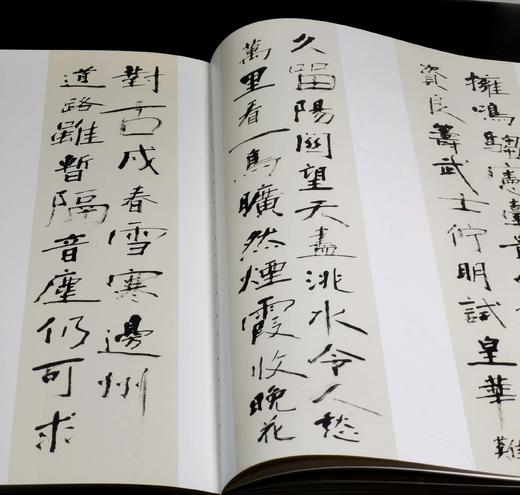 擁鳴騶憲臺貴
資良籌武士佇明試皇華難
久留陽關望天盡洮水令人愁
萬里看一鳥曠然煙霞收晚花
對古戍春雪寒邊州
道路雖暫隔音塵仍可求